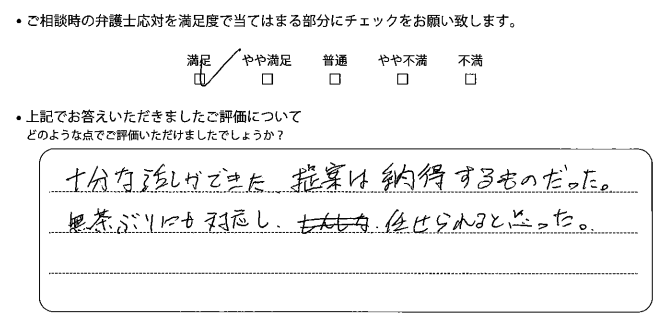 • ご相談時の弁護士応対を満足度で当てはまる部分にチェックをお願い致します。
満足 やや満足 普通 やや不満 不満
• 上記でお答えいただきましたご評価について
どのような点でご評価いただけましたでしょうか？
十分な話しができた、提案は納得するものだった。
無茶ぶりにも対応し、任せられると思った。